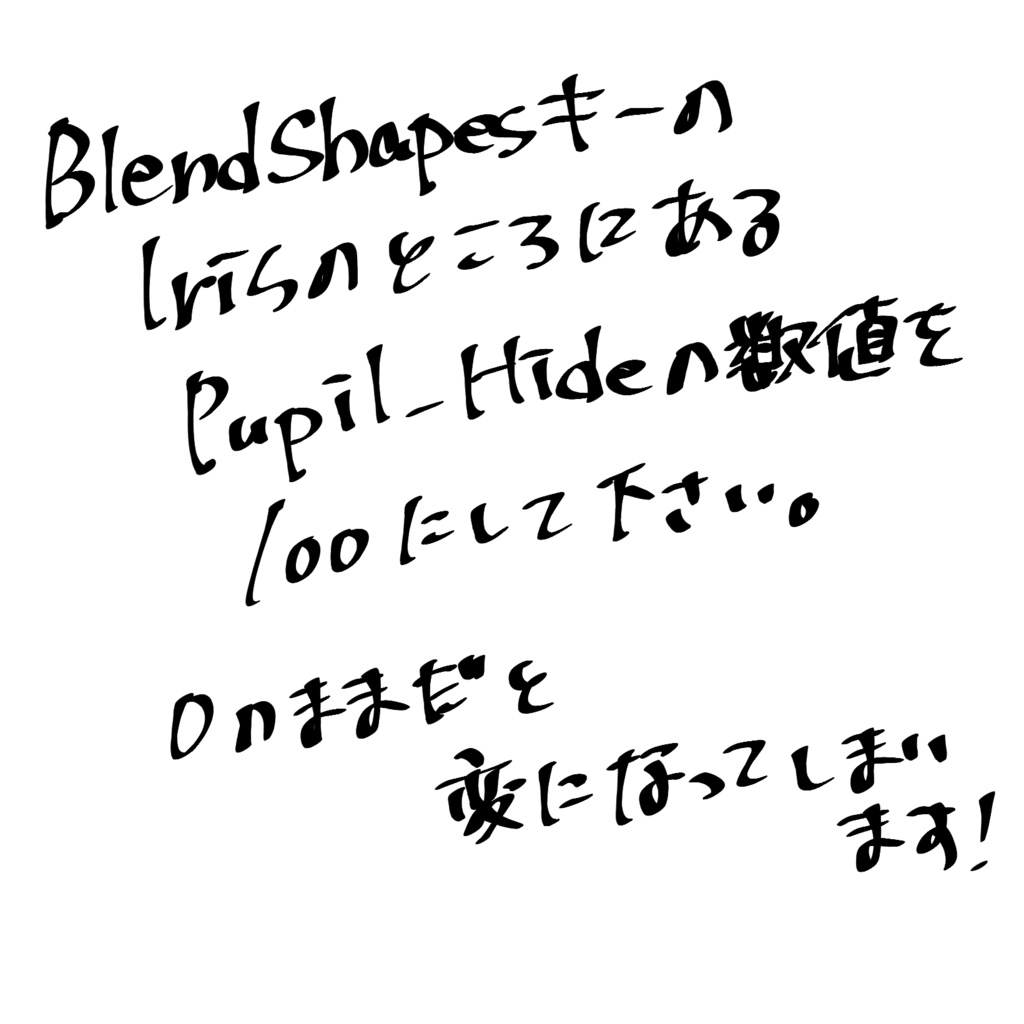 BlendShapesキーの
Irisのところにある
Pupil_Hideの数値を
100にして下さい。
0のままだと
変になってしまい
ます!